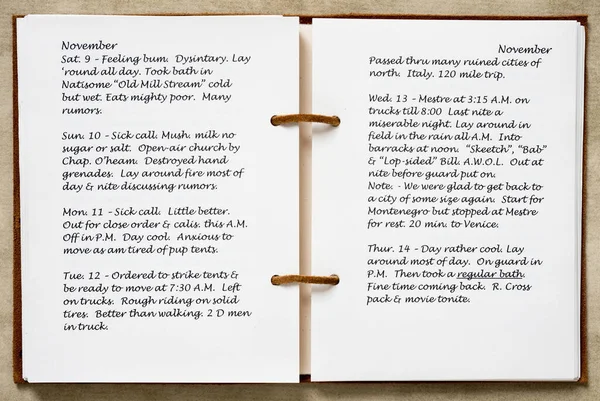 November
Sat. 9 - Feeling bum. Dysintary. Lay
'round all day. Took bath in
Natisome "Old Mill Stream" cold
but wet. Eats mighty poor. Many
rumors.
Sun. 10 - Sick call. Mush. milk no
sugar or salt. Open-air church by
Chap. O'heam. Destroyed hand
grenades. Lay around fire most of
day & nite discussing rumors.
Mon. 11 - Sick call. Little better.
Out for close order & calis. this A.M.
Off in P.M. Day cool. Anxious to
move as am tired of pup tents.
Tue. 12 - Ordered to strike tents &
be ready to move at 7:30 A.M. Left
on trucks. Rough riding on solid
tires. Better than walking. 2 D men
in truck.
November
Passed thru many ruined cities of
north. Italy. 120 mile trip.
Wed. 13 - Mestre at 3:15 A.M. on
trucks till 8:00 Last nite a
miserable night. Lay around in
field in the rain all A.M. Into
barracks at noon. "Skeetch", "Bab"
& "Lop-sided" Bill. A.W.O.L. Out at
nite before guard put on.
Note. - We were glad to get back to
a city of some size again. Start for
Montenegro but stopped at Mestre
for rest. 20 min. to Venice.
Thur. 14 - Day rather cool. Lay
around most of day. On guard in
P.M. Then took a regular bath.
Fine time coming back. R. Cross
pack & movie tonite.